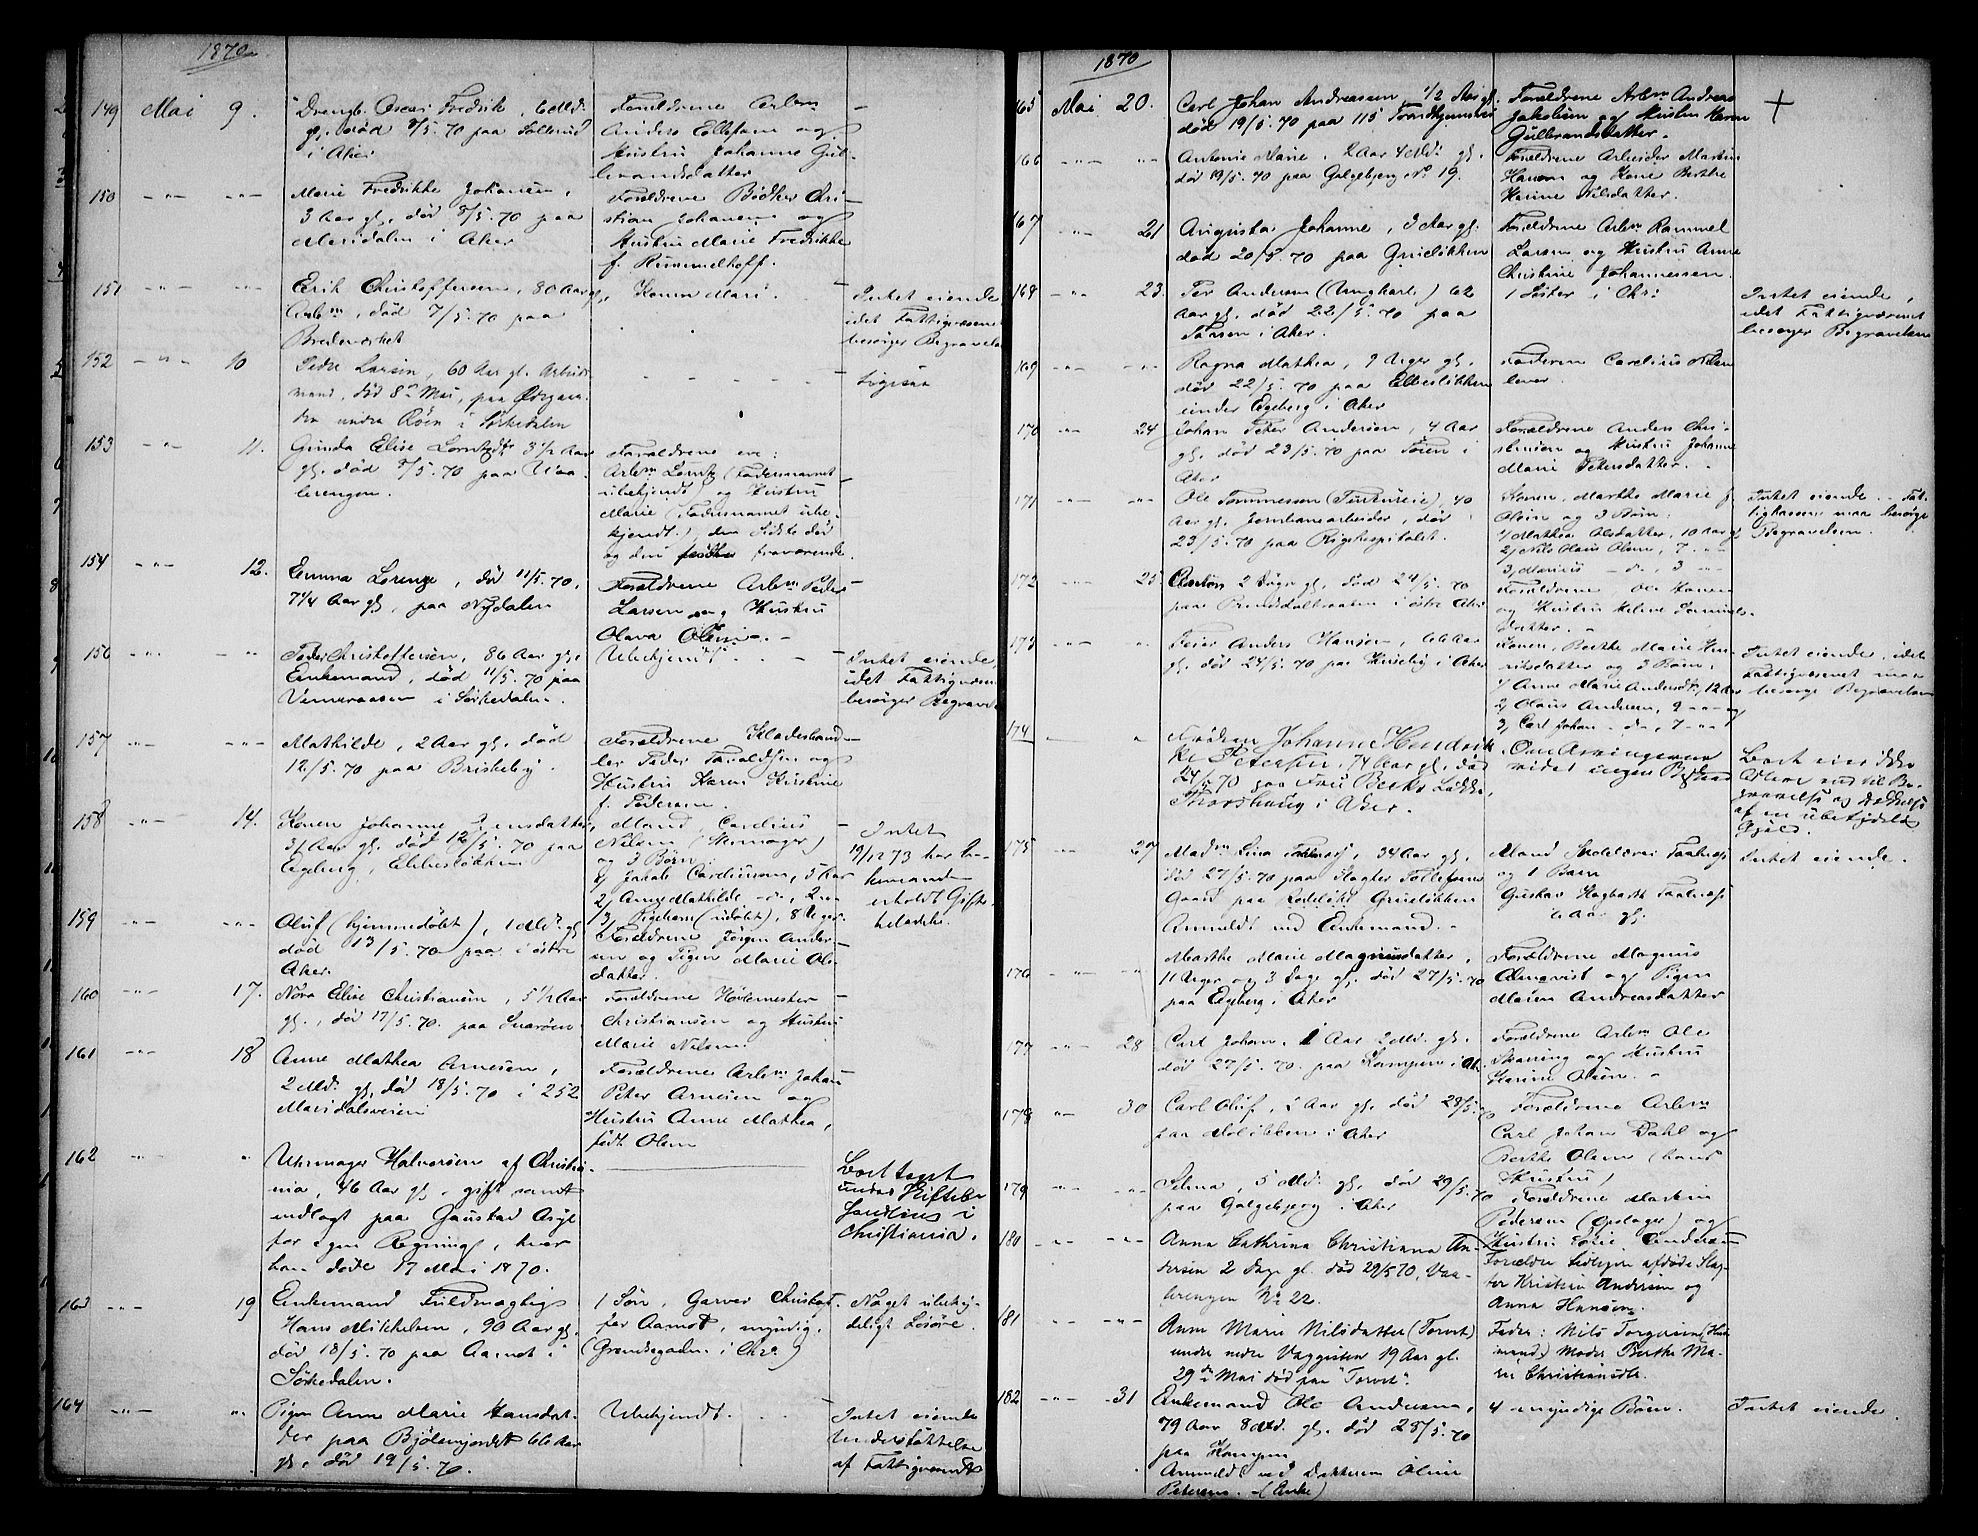 1870
149 Mai 9. Drengb. Oscar Fredrik, 6 Md:
gl. død 8/5. 70 paa Sollerud
i Aker
Forældrene Arbm
Anders Ellefsen og
Hustru Johanne Gul-
brandsdatter
150 -"- -"- Marie Fredrikke Johansen,
3 Aar gl. død 8/5. 70 paa
Maridalen i Aker
Forældrene Bødker Chri-
stian Johansen og
Hustru Marie Fredrikke
f. Rummelhoff.
151 -"- -"- Erik Christoffersen, 80 Aar gl.
Arbm, død 7/5. 70 paa
Bredeværket
Konen Mari.
Intet eiende,
idet Fattigvæsenet
besørger Begravelsen
152 -"- 10 Peder Larsen, 60 Aar gl. Arbeids-
mand, død 8de Mai, paa
under Røen i Sørkedalen
Ligesaa
153 -"- 11. Gunda Elise Lorntzdtr 3 1/2 Aar
gl. død 8/5. 70 paa Vaa-
lerengen.
Forældrene ere:
Arbm Lorntz (Fadersnavnet
ubekjendt) og Hustru
Marie (Fadersnavnet ube-
kjendt), den Sidste død
og den fraværende.
154 -"- 12. Emma Lorenze, død 11/5. 70,
7 1/4 Aar gl., paa Nydalen
Forældrene Arbm Peder
Larsen og Hustru
Olava Olsen.
156 -"- -"- Peder Christoffersen, 86 Aar gl.
Enkemand, død 11/5. 70 paa
i Sørkedalen.
Ubekjendt.
Intet eiende,
idet Fattigvæsenet
besørger Begravels
157 -"- -"- Mathilde, 2 Aar gl. død
12/5. 70 paa Briskeby.
Forældrene Klædeshand-
ler Peder Taraldsen og
Hustru Karen Kirstine
f. Pedersen.
158 -"- 14. Konen Johanne Jensdatter,
Aar gl. død 12/5. 70 paa
Egeberg, Ebbesløkken
Mand, Carelius
Nilsen
og 3 Børn:
1) Jakob Careliussen, 5 Aar
2) Anne Mathilde -d-, 2 -"-
3) Pigebarn (udøbt), 8 Uger
Intet
19/12 73 har En-
kemand
erholdt Skifte-
beladelse.
159 -"- -"- Oluf (hjemmedøbt), 1 Md: gl.
død 13/5. 70 paa i østre
Aker.
Forældrene Jørgen Ander-
sen og Pigen Marie Ols-
datter.
160 -"- 17. Nora Elise Christiansen, 5 1/2 Aar
gl., død 17/5. 70. paa Snarøen
Forældrene Hovmester
Christiansen og Hustru
Marie Nilsen.
161 -"- 18 Anne Mathea Arnesen,
2 Md: gl. død 18/5. 70 i 252
Maridalsveien
Forældrene Arbm Johan
Peter Arnesen og
Hustru Anne Mathea,
født Olsen
162 -"- " Uhrmager Halvorsen af Christia-
nia, 46 Aar gl., gift samt
indlagt paa Gaustad Asyl
for egen Regning, hvor
han døde 17 Mai 1870.
Boet taget
under Skiftebe-
handling i
Christiania.
163 -"- 19 Enkemand Fuldmægtig
Hans Mikkelsen, 90 Aar gl.
død 18/5. 70 paa Aamot i
Sørkedalen.
1 Søn, Garver Christof-
fer Aamot, myndig,
(Grændsegaden i Chra)
Noget ubety-
deligt Løsøre.
164 -"- " Pigen Anne Marie Hansdat-
ter paa Bjølsenjordet 66 Aar
gl., død 19/5. 70.
Ubekjendt.
Intet eiende
Understøttelse
af Fattigvæsenet
1870
165 Mai 20. Carl Johan Andreassen 1/2 Aar gl.
død 19/5. 70 paa 115 Trondhjemsvei
Forældrene Arbm Andreas
Jakobsen og Hustru Karen
Gulbrandsdatter.
+
166 -"- -"- Antonie Marie, 2 Aar 4 Md: gl.
død 19/5. 70 paa Galgebjerg No 19.
Forældrene Arbeider Martin
Hansen og Kone Berthe
Karine Nilsdatter.
167 -"- 21 Augusta Johanne, 3 Aar gl.
død 20/5. 70 paa Grueløkken
Forældrene Arbm
Larsen og Hustru Anne
Christine Johannessen.
168 -"- 23. Per Andersen (Ungkarl) 62
Aar gl. død 22/5. 70 paa
i Aker.
1 Søster i Chr:
Intet eiende,
idet Fattigvæsenet
besørger Begravelsen
169 -"- -"- Ragna Mathea, 9 Uger gl.
død 22/5. 70 paa Ebbesløkken
under Egeberg i Aker
Faderen Carelius Nilsen
lever.
170 -"- 24 Johan Peter Andersen, 4 Aar
gl. død 23/5. 70 paa Toien i
Aker
Forældrene Anders Chri-
stensen og Hustru Johanne
Marie Petersdatter.
171 -"- -"- Ole Tommessen, 40
Aar gl. Jernbanearbeider, død
23/5. 70 paa Rigshospitalet.
Konen, Marthe Marie f.
Olsen og 3 Børn:
1) Mathea Olsdatter, 10 Aar gl.
2) Nils Olaus Olsen, 7 -"-
3) Marius -d-, 3 -"-
Intet eiende. - Fat-
tigkassen maa besørge
Begravelsen.
172 -"- 25 2 Dage gl. død 24/5. 70
paa i østre Aker
Forældrene, Ole Hansen
og Hustru Helene
datter.
173 -"- " Anders Hansen, 66 Aar
gl. død 24/5. 70 paa Huseby i Aker
Konen, Berthe Marie Hen-
riksdatter og 3 Børn:
1) Anne Marie Andersdtr, 12 Aar
2) Olaus Andersen, 9 -"- og
3) Carl Johan -d-, 7 -"-
Intet eiende, idet
Fattigvæsenet maa
besørge Begravelsen
174 - " Frøken Johanne Hendrik-
ke Petersen, 74 Aar gl. død
24/5 70 paa Fru Bechs Løkke,
Thorshaug i Aker.
Om Arvingerne
vides ingen Besked
Boet eier ikke
mere end til Be-
gravelse og Dækkelse
af en ubetydelig
Gjæld.
175 -"- 27 Madm Lina, 34 Aar gl.,
død 27/5. 70 paa Slagter Tollefsens
Gaard paa Grueløkken
Anmeldt ved Enkemand.
Mand
og 1 Barn
Gustav Hagbarth
Aar gl.
Intet eiende.
176 -"- -"- Marthe Marie Magnusdatter,
11 Uger og 3 Dage gl. død 27/5. 70
paa Egeberg i Aker
Forældrene Magnus
Almqvist og Pigen
Maren Andreasdatter
177 -"- 28 Carl Johan, 1 Aar 2 Md: gl.
død 27/5. 70. paa Kampen i Ak
Forældrene Arbm Ole
Skarring og Hustru
Karine Olsen.
178 -"- 30 Carl Oluf, 1 Aar gl. død 28/5.
paa i Aker
Forældrene Arbm
Carl Johan Dahl og
Berthe Olsen (hans
Hustru)
179 -"- -"- Selma, 5 Md: gl. død 29/5. 70
paa Galgebjerg i Aker
Forældrene Martin
Pedersen (Opslager) og
Hustru Andersen
180 -"- -"- Anna Cathrina Christiana An-
dersen 2 Dage gl. død 29/5 70, Vaa-
lerengen No 22.
Forældre Sidstgen afdøde Slag-
ter Kristen Andersen og
Anna Hansen.
181 -"- -"- Anne Marie Nilsdatter (Torvet)
under nedre Vaggesten 19 Aar gl.
29de Mai død paa "Torvet".
Fader: Nils Torgersen (Hus-
mand) Moder Berthe Ma-
rie Christiansdtr.
182 -"- 31 Enkemand Ole Andersen,
79 Aar 8 Md. gl. død 28/5. 70
paa Kampen
Anmeldt ved Datteren Oline
Petersen. - (Enke)
4 myndige Børn.
Intet eiende.